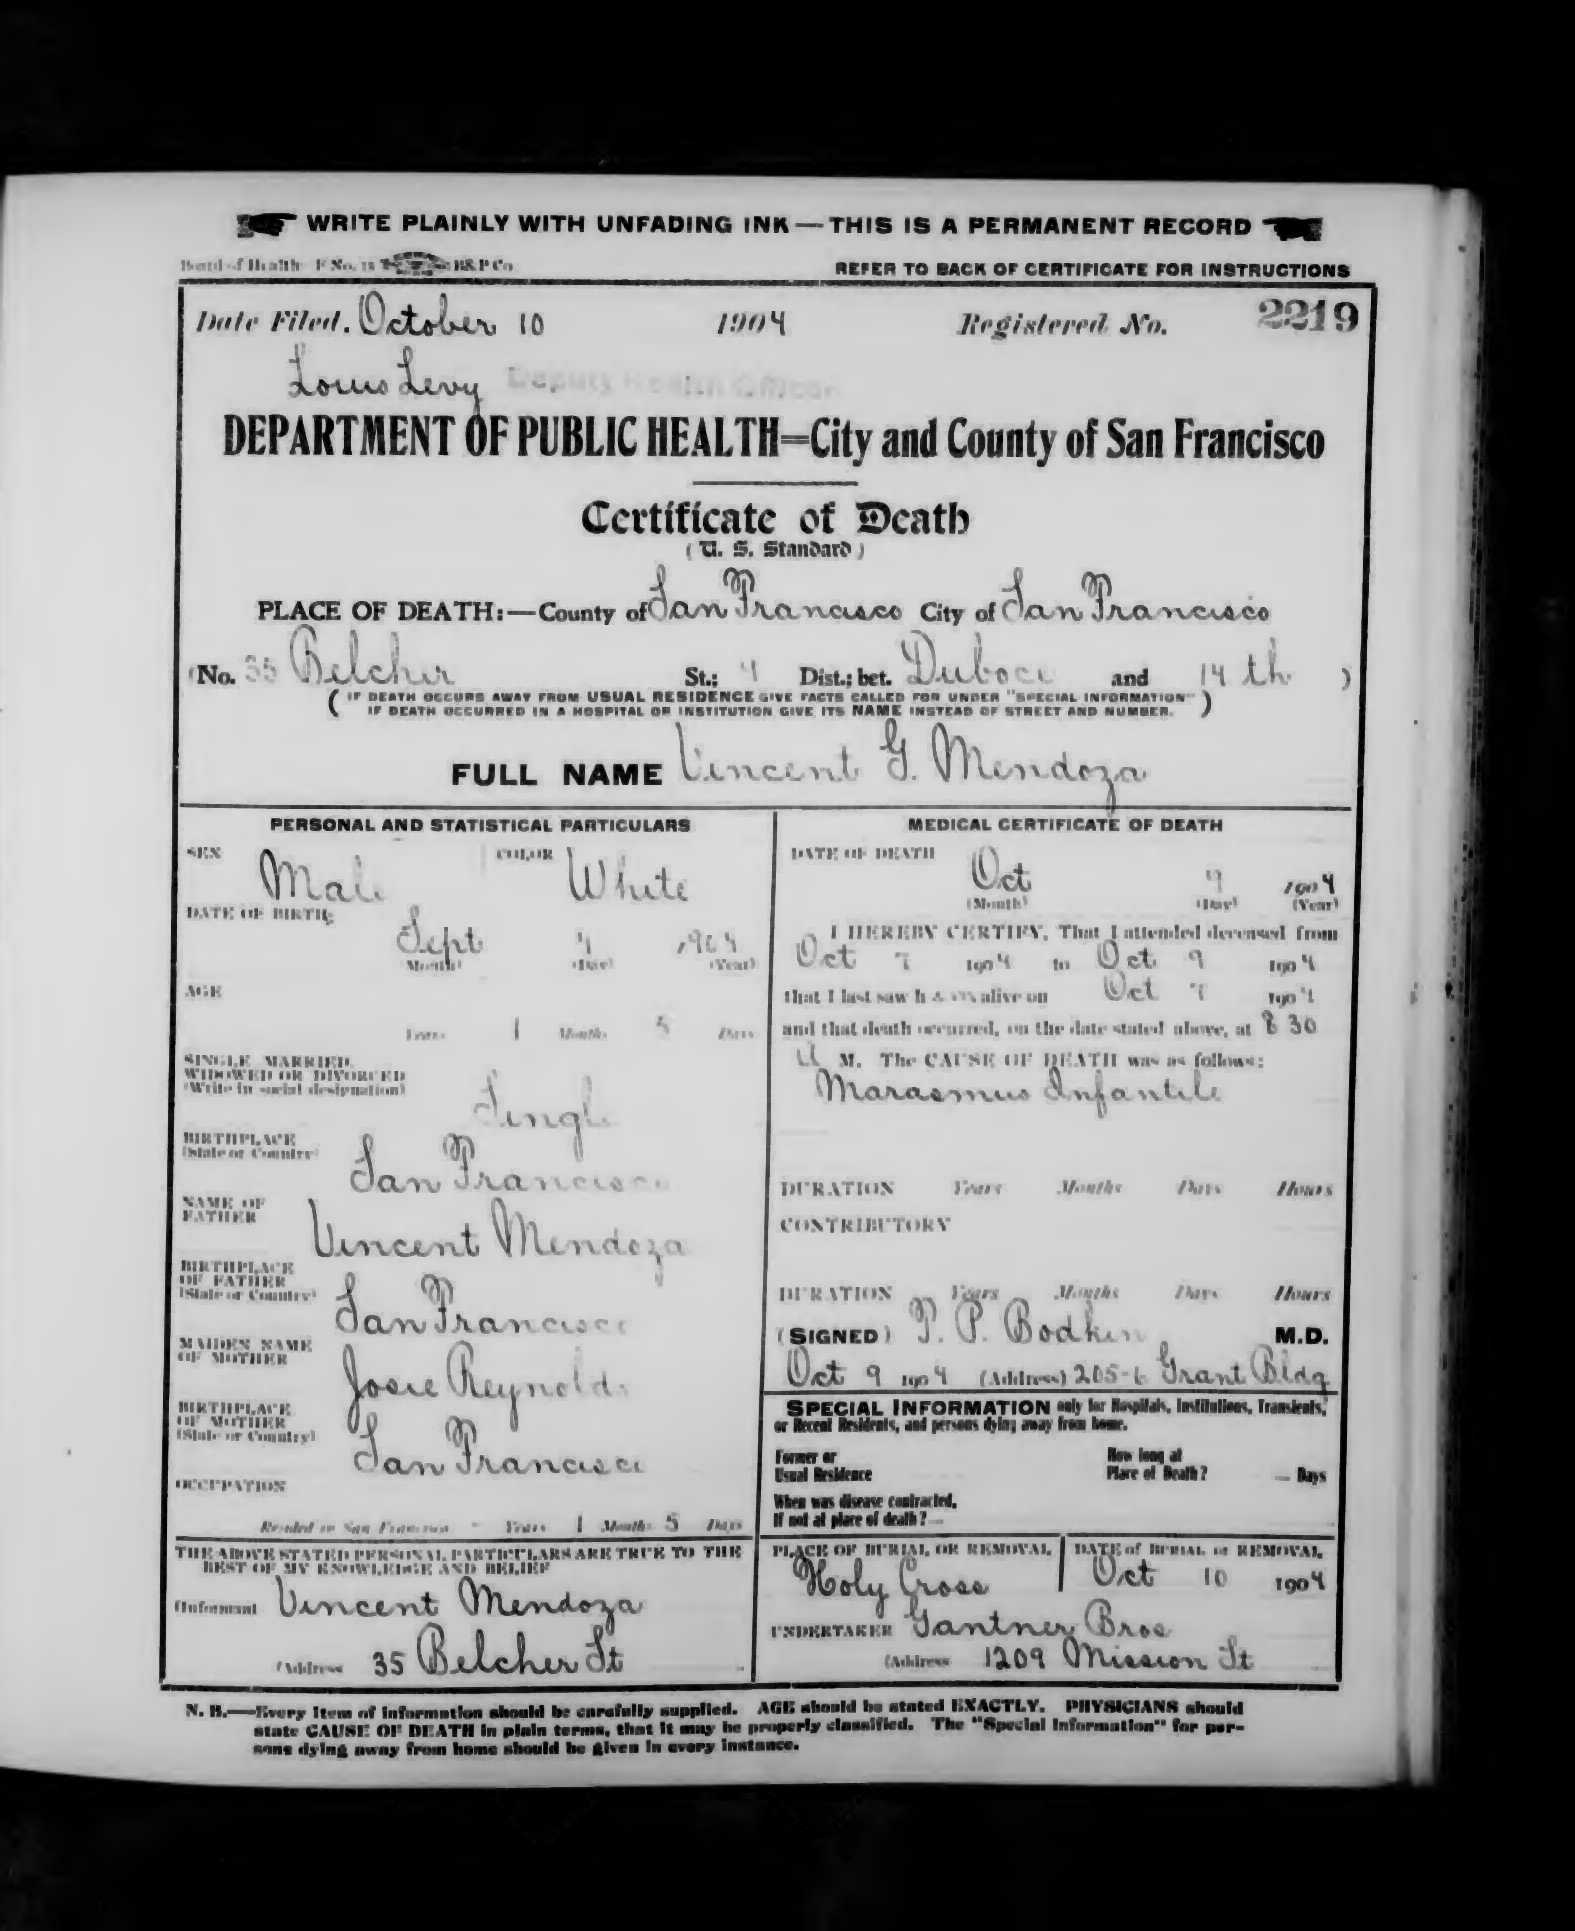 WRITE PLAINLY WITH UNFADING INK — THIS IS A PERMANENT RECORD
Board of Health F No. 11 B&P Co
REFER TO BACK OF CERTIFICATE FOR INSTRUCTIONS
Date Filed. October 10 1904 Registered No. 2219
Louis Levy Deputy Health Officer
DEPARTMENT OF PUBLIC HEALTH=City and County of San Francisco
Certificate of Death
( U. S. Standard )
PLACE OF DEATH:—County of San Francisco City of San Francisco
(No. 35 Belcher St.; 4 Dist.; bet. Duboce and 14 th )
( IF DEATH OCCURS AWAY FROM USUAL RESIDENCE GIVE FACTS CALLED FOR UNDER "SPECIAL INFORMATION"
IF DEATH OCCURRED IN A HOSPITAL OR INSTITUTION GIVE ITS NAME INSTEAD OF STREET AND NUMBER. )
FULL NAME Vincent G. Mendoza
PERSONAL AND STATISTICAL PARTICULARS
SEX Male COLOR White
DATE OF BIRTH
Sept 4 1904
(Month) (Day) (Year)
AGE
Years 1 Months 5 Days
SINGLE, MARRIED,
WIDOWED OR DIVORCED
(Write in social designation)
Single
BIRTHPLACE
(State or Country)
San Francisco
NAME OF
FATHER
Vincent Mendoza
BIRTHPLACE
OF FATHER
(State or Country)
San Francisco
MAIDEN NAME
OF MOTHER
Josie Reynolds
BIRTHPLACE
OF MOTHER
(State or Country)
San Francisco
OCCUPATION
Resided in San Francisco - Years 1 Months 5 Days
THE ABOVE STATED PERSONAL PARTICULARS ARE TRUE TO THE
BEST OF MY KNOWLEDGE AND BELIEF
(Informant Vincent Mendoza
(Address 35 Belcher St
MEDICAL CERTIFICATE OF DEATH
DATE OF DEATH
Oct 9 1904
(Month) (Day) (Year)
I HEREBY CERTIFY, That I attended deceased from
Oct 7 1904 to Oct 9 1904
that I last saw h im alive on Oct 1904
and that death occurred, on the date stated above, at 8 30
a M. The CAUSE OF DEATH was as follows:
Marasmus Infantile
DURATION Years Months Days Hours
CONTRIBUTORY
DURATION Years Months Days Hours
(SIGNED) P. P. Bodkin M.D.
Oct 9 1904 (Address) 205-6 Grant Bldg
SPECIAL INFORMATION only for Hospitals, Institutions, Transients,
or Recent Residents, and persons dying away from home.
Former or
Usual Residence
How long at
Place of Death? — Days
When was disease contracted,
If not at place of death? —
PLACE OF BURIAL OR REMOVAL
Holy Cross
DATE of BURIAL or REMOVAL
Oct 10 1904
UNDERTAKER Gantner Bros
(Address 1209 Mission St
N. B.—Every item of information should be carefully supplied. AGE should be stated EXACTLY. PHYSICIANS should
state CAUSE OF DEATH in plain terms, that it may be properly classified. The "Special Information" for per-
sons dying away from home should be given in every instance.